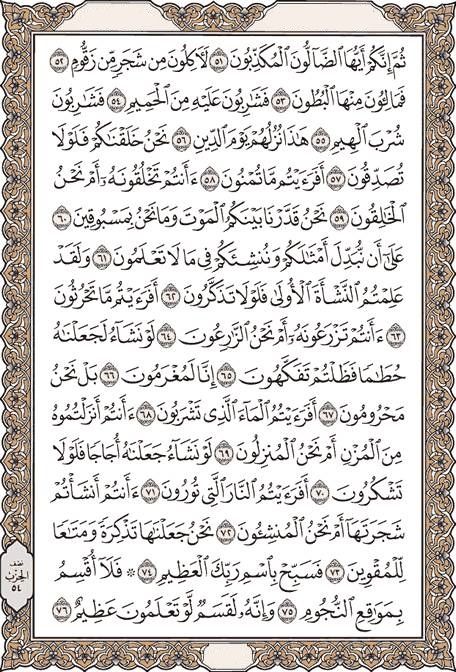 ثُمَّ إِنَّكُمْ أَيُّهَا ٱلضَّآلُّونَ ٱلْمُكَذِّبُونَ ٥١ لَآكِلُونَ مِن شَجَرٍ مِّن زَقُّومٍ ٥٢
فَمَالِـُٔونَ مِنْهَا ٱلْبُطُونَ ٥٣ فَشَٰرِبُونَ عَلَيْهِ مِنَ ٱلْحَمِيمِ ٥٤ فَشَٰرِبُونَ
شُرْبَ ٱلْهِيمِ ٥٥ هَٰذَا نُزُلُهُمْ يَوْمَ ٱلدِّينِ ٥٦ نَحْنُ خَلَقْنَٰكُمْ فَلَوْلَا
تُصَدِّقُونَ ٥٧ أَفَرَءَيْتُم مَّا تُمْنُونَ ٥٨ ءَأَنتُمْ تَخْلُقُونَهُۥٓ أَمْ نَحْنُ
ٱلْخَٰلِقُونَ ٥٩ نَحْنُ قَدَّرْنَا بَيْنَكُمُ ٱلْمَوْتَ وَمَا نَحْنُ بِمَسْبُوقِينَ ٦٠
عَلَىٰٓ أَن نُّبَدِّلَ أَمْثَٰلَكُمْ وَنُنشِئَكُمْ فِى مَا لَا تَعْلَمُونَ ٦١ وَلَقَدْ
عَلِمْتُمُ ٱلنَّشْأَةَ ٱلْأُولَىٰ فَلَوْلَا تَذَكَّرُونَ ٦٢ أَفَرَءَيْتُم مَّا تَحْرُثُونَ
٦٣ ءَأَنتُمْ تَزْرَعُونَهُۥٓ أَمْ نَحْنُ ٱلزَّٰرِعُونَ ٦٤ لَوْ نَشَآءُ لَجَعَلْنَٰهُ
حُطَٰمًا فَظَلْتُمْ تَفَكَّهُونَ ٦٥ إِنَّا لَمُغْرَمُونَ ٦٦ بَلْ نَحْنُ
مَحْرُومُونَ ٦٧ أَفَرَءَيْتُمُ ٱلْمَآءَ ٱلَّذِى تَشْرَبُونَ ٦٨ ءَأَنتُمْ أَنزَلْتُمُوهُ
مِنَ ٱلْمُزْنِ أَمْ نَحْنُ ٱلْمُنزِلُونَ ٦٩ لَوْ نَشَآءُ جَعَلْنَٰهُ أُجَاجًا فَلَوْلَا
تَشْكُرُونَ ٧٠ أَفَرَءَيْتُمُ ٱلنَّارَ ٱلَّتِى تُورُونَ ٧١ ءَأَنتُمْ أَنشَأْتُمْ
شَجَرَتَهَآ أَمْ نَحْنُ ٱلْمُنشِـُٔونَ ٧٢ نَحْنُ جَعَلْنَٰهَا تَذْكِرَةً وَمَتَٰعًا
لِّلْمُقْوِينَ ٧٣ فَسَبِّحْ بِٱسْمِ رَبِّكَ ٱلْعَظِيمِ ٧٤ ۞ فَلَآ أُقْسِمُ
بِمَوَٰقِعِ ٱلنُّجُومِ ٧٥ وَإِنَّهُۥ لَقَسَمٌ لَّوْ تَعْلَمُونَ عَظِيمٌ ٧٦
نصف
الحزب
٥٤